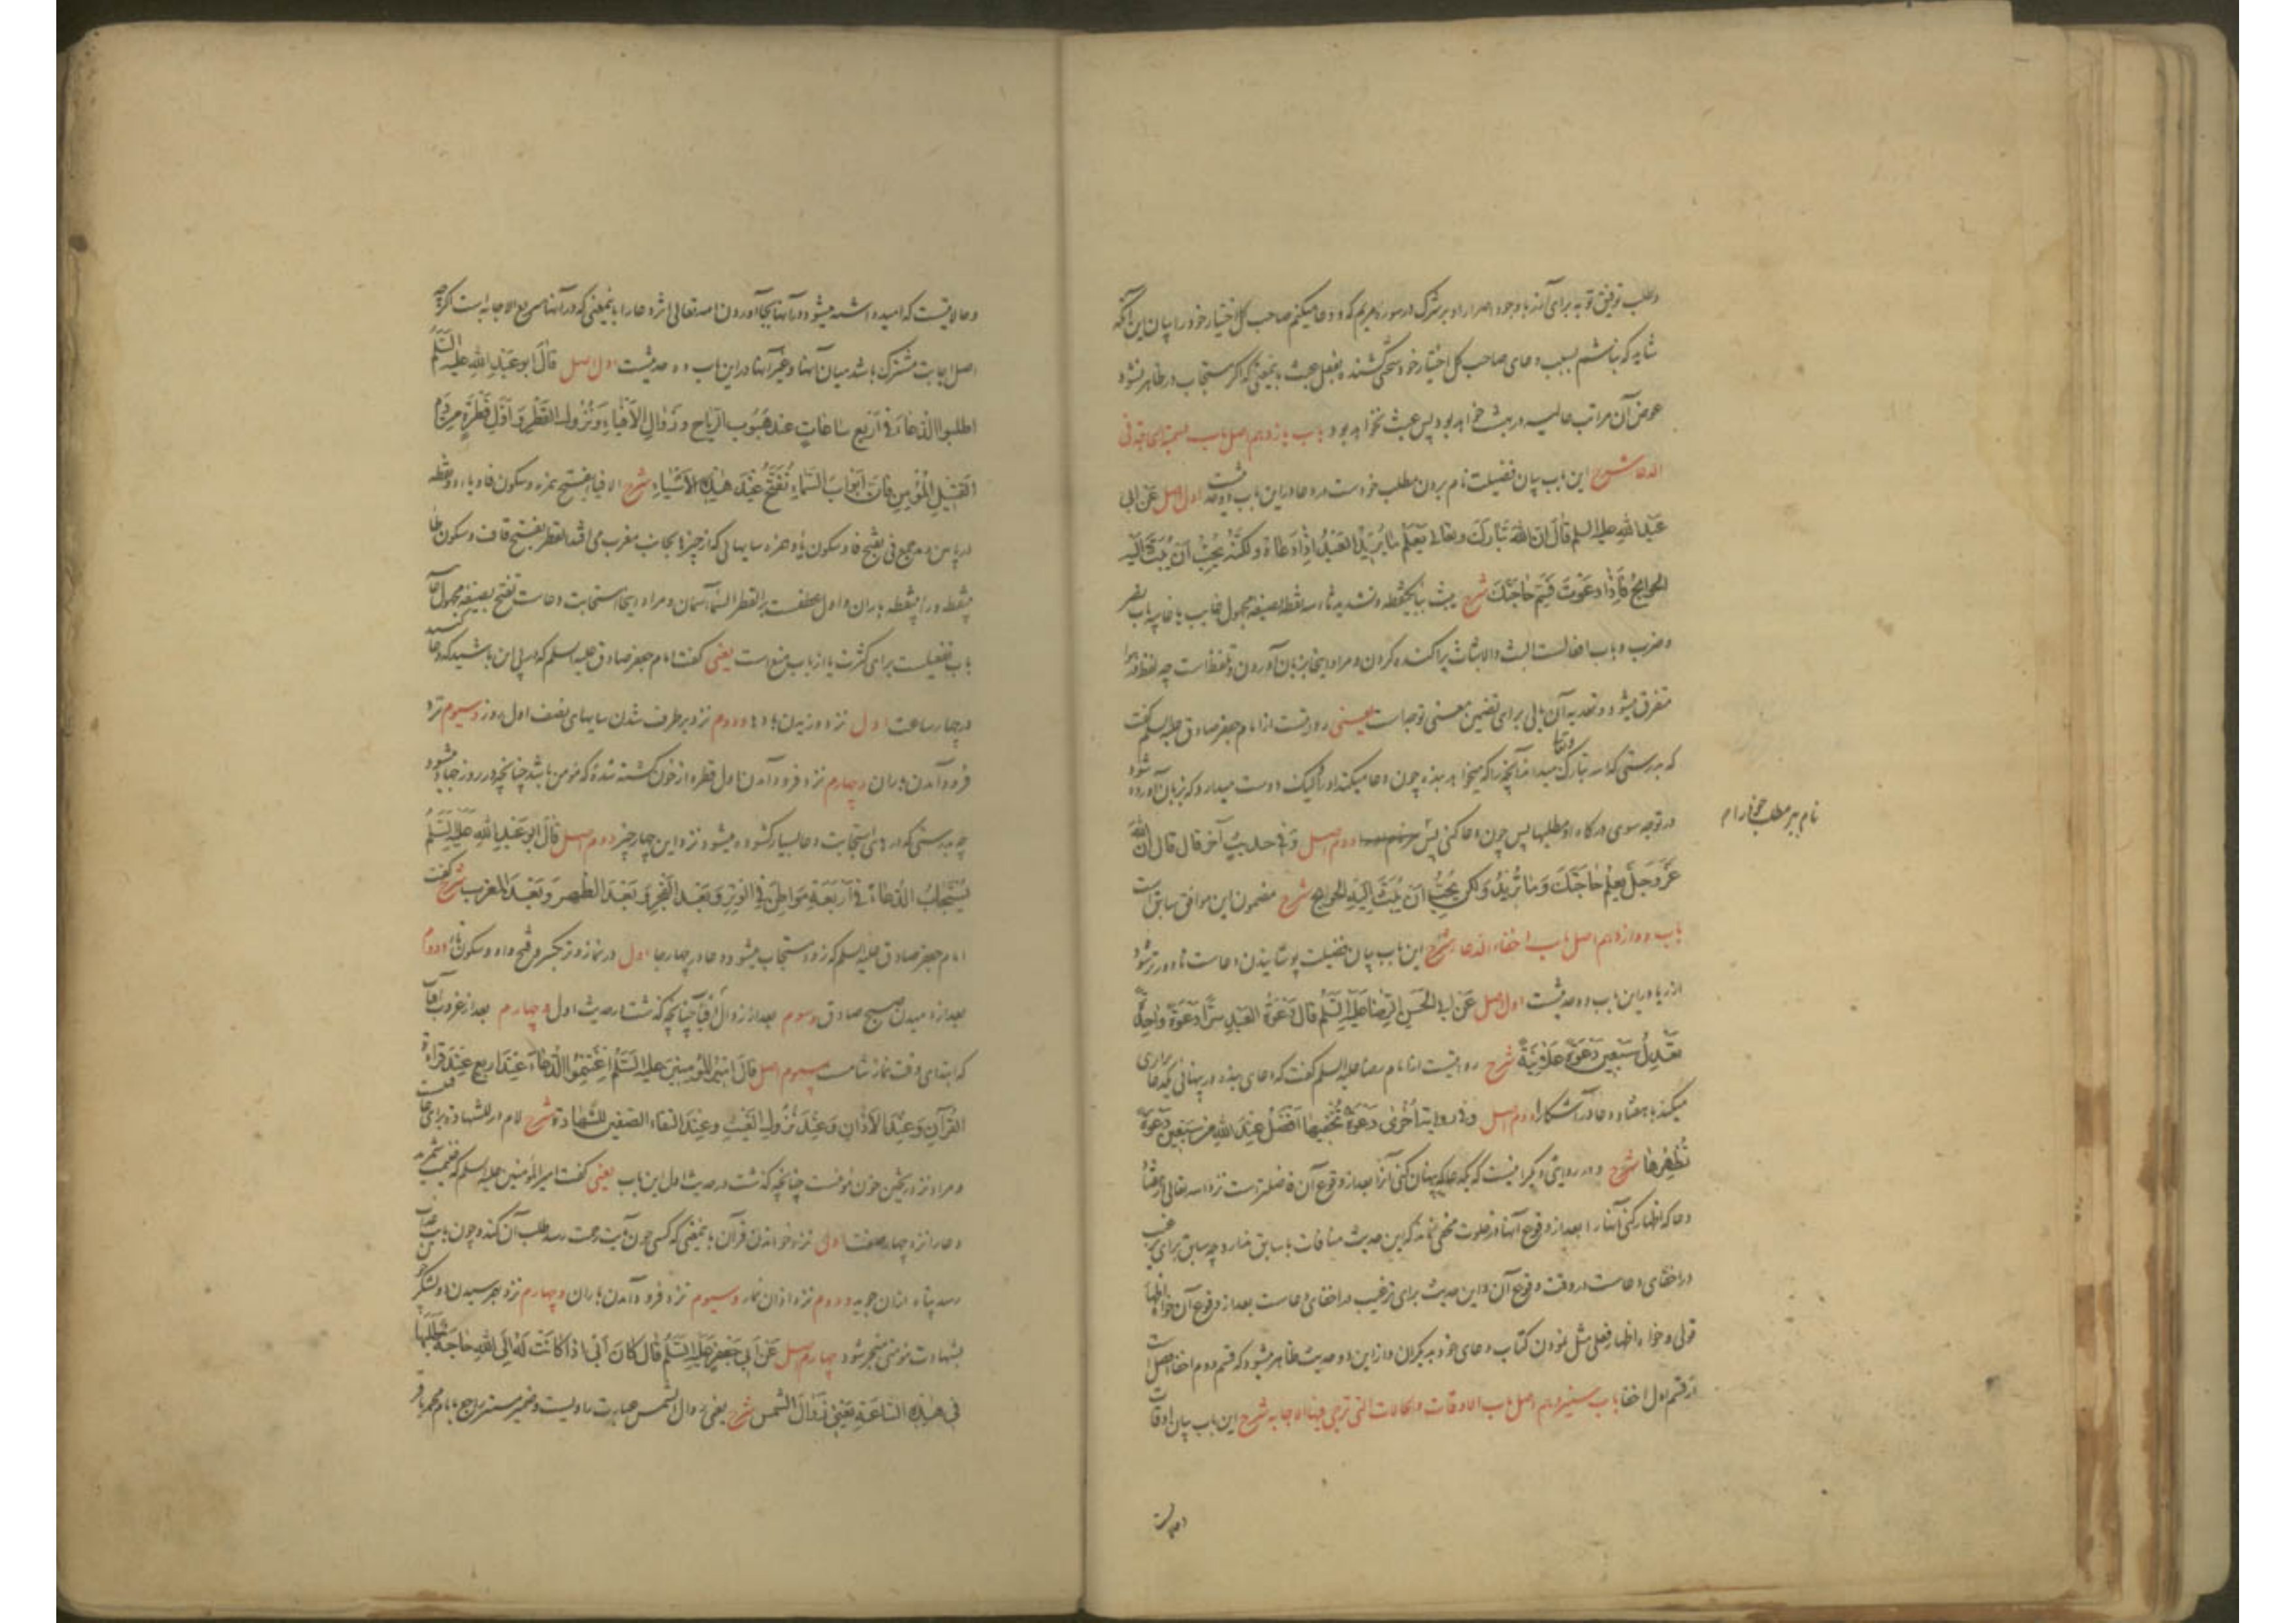 وطلب توفیق توبه برای آنند با وجود اصرار او بر شرک در سوره مریم که ودعا میکنم صاحب کل اختیار خود را بیان این آنکه
شاید که نباشم بسبب دعای صاحب کل اختیار خود سختی کشنده بفعل عبث باینمعنی که اگر مستجاب در ظاهر نشود
عوض آن مراتب عالیه در بهشت خواهد بود پس عبث نخواهد بود باب یازدهم اصل باب تسمیة الحاجة فی
الدعا شرح این باب بیان فضیلت نام بردن مطلب خودست در دعا در این باب دو حدیثست اول اصل عن ابی
عبد الله علیه السلم قال ان الله تبارک وتعالی یعلم ما یرید العبد اذا دعاه ولکنه یحب ان یبث الیه
الحوایج فاذا دعوت فسم حاجتک شرح یبث بباء یکنقطه وتشدید ثاء سه نقطه بصیغه مجهول غایب یا غایبه باب نصر
وضرب وباب افعالست البث والابثاث پراکنده کردن ومراد اینجا بزبان آوردن وتلفظ است چه لفظ در هوا
متفرق میشود وتعدیه آن بالی برای تضمین معنی توجهست یعنی روایتست از امام جعفر صادق علیه السلم گفت
که بدرستی که الله تبارک وتعالی میداند آنچه را که میخواهد بنده چون دعا میکند او را لیک دوست میدارد که بزبان آورده شود
در توجه سوی درگاه او مطلبها پس چون دعا کنی پس نام ببر مطلب خود را م دوم اصل وفی حدیث آخر قال قال ان الله
عز وجل یعلم حاجتک وما ترید ولکن یحب ان یبث الیه الحوایج شرح مضمون این موافق سابق است
باب دوازدهم اصل باب اخفاء الدعاء شرح این باب بیان فضیلت پوشانیدن دعاست تا دورتر شود
از ریا در این باب دو حدیثست اول اصل عن ابی الحسن الرضا علیه السلم قال دعوة العبد سرا دعوة واحدة
تعدیل سبعین دعوة علانیة شرح روایتست از امام رضا علیه السلم گفت که دعای بنده در پنهانی یکدعا برابری
میکند با هفتاد دعا در آشکارا دوم اصل وفی روایة اخری دعوة تخفیها افضل عند الله من سبعین دعوة
تظهرها شرح ودر روایتی دیگر اینست که یکدعا که پنهان کنی آنرا بعد از وقوع آن فاضلترست نزد الله تعالی از هفتاد
دعا که اظهار کنی آنها را بعد از وقوع آنها در خلوت مخفی نماند که این حدیث منافات با سابق ندارد چه سابق برای ترغیب
در اخفای دعاست در وقت وقوع آن واین حدیث برای ترغیب در اخفای دعاست بعد از وقوع آن خواه اظهار
قولی وخواه اظهار فعلی مثل نمودن کتاب دعای خود بدیگران واز این دو حدیث ظاهر میشود که قسم دوم اخفا افضل است
از قسم اول اخفا باب سیزدهم اصل باب الاوقات والحالات التی ترجی فیها الاجابه شرح این باب بیان اوقات
وحالاتیست که امید داشته میشود در آنها بجا آوردن الله تعالی اثر دعا را باینمعنی که در آنها سریع الاجابه است اگرچه
اصل اجابت مشترک باشد میان آنها وغیر آنها در این باب ده حدیثست اول اصل قال ابو عبد الله علیه السلم
اطلبوا الدعاء فی اربع ساعات عند هبوب الریاح وزوال الافیاء ونزول القطر واول قطرة من دم
القتیل المؤمن فان ابواب السماء تفتح عند هذه الاشیاء شرح الافیاء بفتح همزه وسکون فا ویاء دو نقطه
در پایین جمع فی بفتح فا وسکون یا وهمزه سایهایی که از چیزها بجانب مغرب می افتد القطر بفتح قاف وسکون طاء
بینقطه وراء بینقطه باران واول عطفست بر القطر السماء آسمان ومراد اینجا استجابت دعاست تفتح بصیغه مجهول غایبه
باب تفعیلست برای کثرت یا از باب منع است یعنی گفت امام جعفر صادق علیه السلم که در پی این باشید که دعا کنید
در چهار ساعت اول نزد وزیدن بادها ودوم نزد برطرف شدن سایهای نصف اول روز وسیوم نزد
فرود آمدن باران وچهارم نزد فرود آمدن اول قطره از خون کشته شده که مؤمن باشد چنانچه در روز جهاد میشود
چه بدرستی که درهای استجابت دعا بسیار گشوده میشود نزد این چهار چیز دوم اصل قال ابو عبد الله علیه السلم
یستجاب الدعاء فی اربعة مواطن فی الوتر وبعد الفجر وبعد الظهر وبعد المغرب شرح گفت
امام جعفر صادق علیه السلم که زود مستجاب میشود دعا در چهار جا اول در نماز وتر بکسر وفتح واو وسکون تاء ودوم
بعد از دمیدن صبح صادق وسوم بعد از زوال افیا چنانچه گذشت در حدیث اول وچهارم بعد از غروب آفتاب
که ابتدای وقت نماز شامست سیوم اصل قال امیر المؤمنین علیه السلم اغتنموا الدعاء عند اربع عند قراءة
القرآن وعند الاذان وعند نزول الغیث وعند التقاء الصفین للشهادة شرح لام در للشهادة برای عاقبت
ومراد نزد ریختن خون مؤمنست چنانچه گذشت در حدیث اول این باب یعنی گفت امیر المؤمنین علیه السلم که غنیمت شمرید
دعا را نزد چهار صفت اول نزد خواندن قرآن باینمعنی که کسی چون بآیت رحمت رسد طلب آن کند وچون بآیت عذاب
رسد پناه از آن جوید ودوم نزد اذان نماز وسیوم نزد فرود آمدن باران وچهارم نزد بهم رسیدن دو لشکر که
بشهادت مؤمنی منجر شود چهارم اصل عن ابی جعفر علیه السلم قال کان ابی اذا کانت له الی الله حاجة طلبها
فی هذه الساعة یعنی زوال الشمس شرح یعنی زوال الشمس عبارت راویست وضمیر مستتر راجع بامام محمد باقر